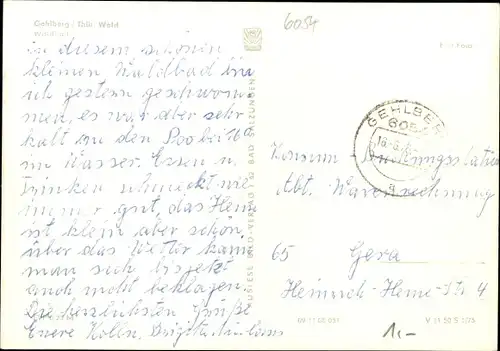 6054
Gehlberg / Thür. Wald
Waldbad
in diesem schönen
kleinen Waldbad bin
ich gestern geschwom-
men, es war aber sehr
kalt zu den Poo bei 16°
im Wasser. Essen u.
Trinken schmeckt wie
immer gut, das Heim
ist klein aber schön,
über das Wetter kann
man sich bis jetzt
auch nicht beklagen.
Die herzlichsten Grüße
Eure Kolln. Brigitte
AUSLESE-BILD-VERLAG KG BAD SALZUNGEN
GEHLBERG
605
Konsum-
Abt. Warenrechnung
65 Gera
Heinrich-Heine-Str 4
V 11 50 S 1/75
1,-